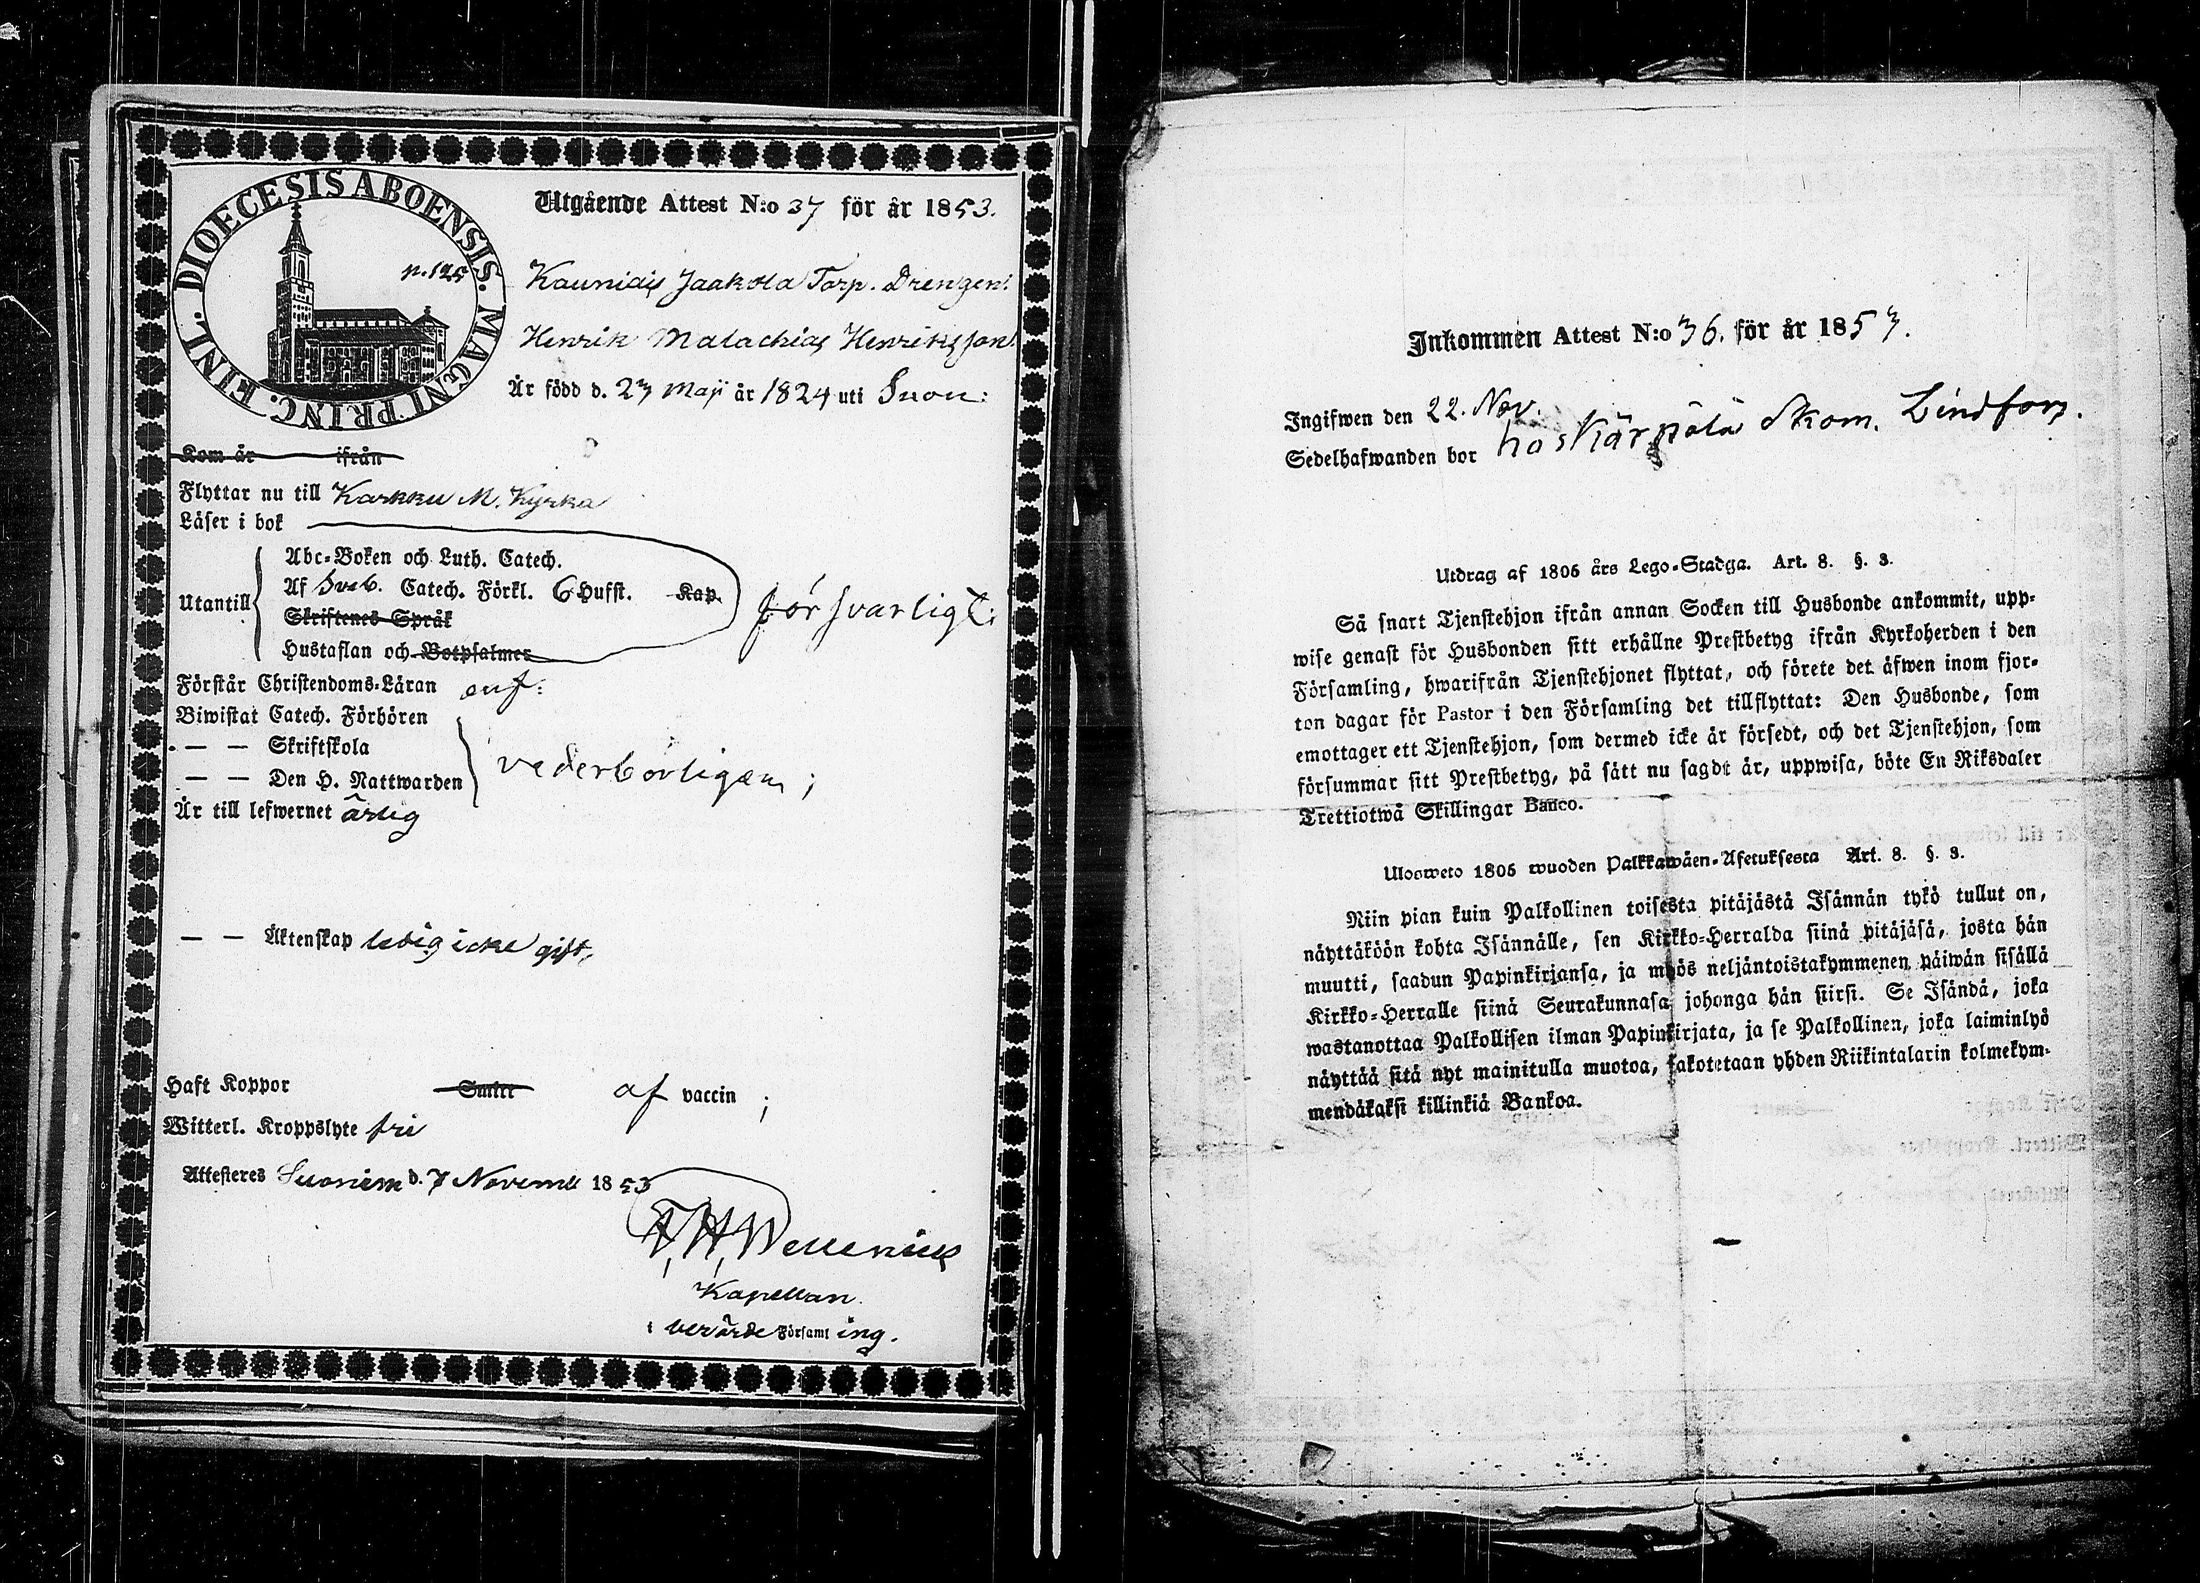 DIOECESIS ABOENSIS. MAGNI PRINC. FINL.
p. 125
Utgående Attest N:o 37 för år 1853.
Kauniais Jaakola Torp. Drengen:
Henrik Malachias Henriksson
Är född d. 23 Maji år 1824 uti Suon:
Kom år ifrån
Flyttar nu till Karkku M. Kyrka
Läser i bok
Utantill
Abc-Boken och Luth. Catech.
Af Sveb. Catech. Förkl. 6 Hufst. Kap.
Skriftenes Språk
Hustaflan och Botpsalmer
försvarligt:
Förstår Christendoms-Läran enf:
Biwistat Catech. Förhören
— — Skriftskola
— — Den H. Nattwarden
vederbörligen;
Är till lefwernet ärlig
— — Äktenskap ledig icke gift,
Haft Koppor Smitt af vaccin ;
Witterl. Kroppslyte fri
Attesteres Suoniem d. 7 Novemb 1853
F. H. Wellenius
Kapellan
i berörde Församl ing.
Inkommen Attest N:o 36. för år 1853.
Ingifwen den 22. Nov.
Sedelhafwanden bor hos Kärpälä Skom. Lindfors.
Utdrag af 1805 års Lego-Stadga. Art. 8. §. 3.
Så snart Tjenstehjon ifrån annan Socken till Husbonde ankommit, upp-
wise genast för Husbonden sitt erhållne Prestbetyg ifrån Kyrkoherden i den
Församling, hwarifrån Tjenstehjonet flyttat, och förete det äfwen inom fjor-
ton dagar för Pastor i den Församling det tillflyttat: Den Husbonde, som
emottager ett Tjenstehjon, som dermed icke är försedt, och det Tjenstehjon, som
försummar sitt Prestbetyg, på sätt nu sagdt är, uppwisa, böte En Riksdaler
Trettiotwå Skillingar Banco.
Ulosweto 1805 wuoden Palkkawäen-Asetuksesta Art. 8. §. 3.
Niin pian kuin Palkollinen toisesta pitäjästä Isännän tykö tullut on,
näyttäköön kohta Isännälle, sen Kirkko-Herralda siinä pitäjäsä, josta hän
muutti, saadun Papinkirjansa, ja myös neljäntoistakymmenen päiwän sisällä
Kirkko-Herralle siinä Seurakunnasa johonga hän siirsi. Se Isändä, joka
wastanottaa Palkollisen ilman Papinkirjata, ja se Palkollinen, joka laiminlyö
näyttää sitä nyt mainitulla muotoa, sakotetaan yhden Riikintalarin kolmekym-
mendäkaksi killinkiä Bankoa.